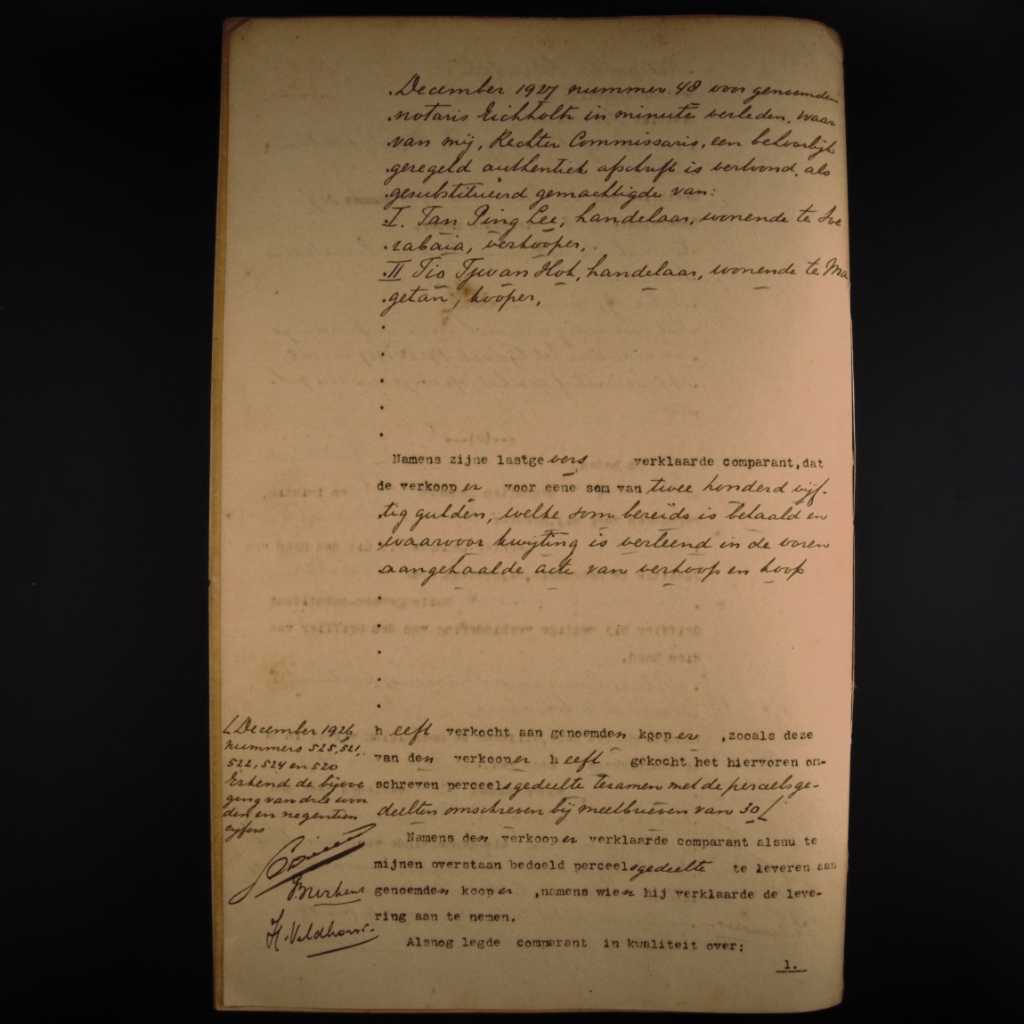 December 1927 nummer 48 voor genoemden
notaris Eichholtz in minute verleden, waar
van mij, Rechter Commissaris, een behoorlijk
geregeld authentiek afschrift is vertoond, als
gesubstitueerd gemachtigde van:
I. Tan Ping Lee, handelaar, wonende te Soe
rabaia, verkooper,
II Tio Tjwan Hok, handelaar, wonende te Ma
getan, kooper,
Namens zijne lastgevers verklaarde comparant, dat
de verkooper voor eene som van twee honderd vijf-
tig gulden, welke som bereids is betaald en
waarvoor kwijting is verleend in de voren
aangehaalde acte van verkoop en koop
heeft verkocht aan genoemden kooper, zooals deze
van den verkooper heeft gekocht het hiervoren om-
schreven perceelsgedeelte tezamen met de perceelsge-
deelten omschreven bij meetbrieven van 30 /
/ December 1926
nummers 525, 521,
522, 524 en 520
Erkend de bijvoe
ging van drie woor
den en negentien
cijfers
H. Veldhorst.
Namens den verkooper verklaarde comparant alsnu te
mijnen overstaan bedoeld perceelsgedeelte te leveren aan
genoemden kooper, namens wien hij verklaarde de leve-
ring aan te nemen.
Alsnog legde comparant in kwaliteit over:
1.